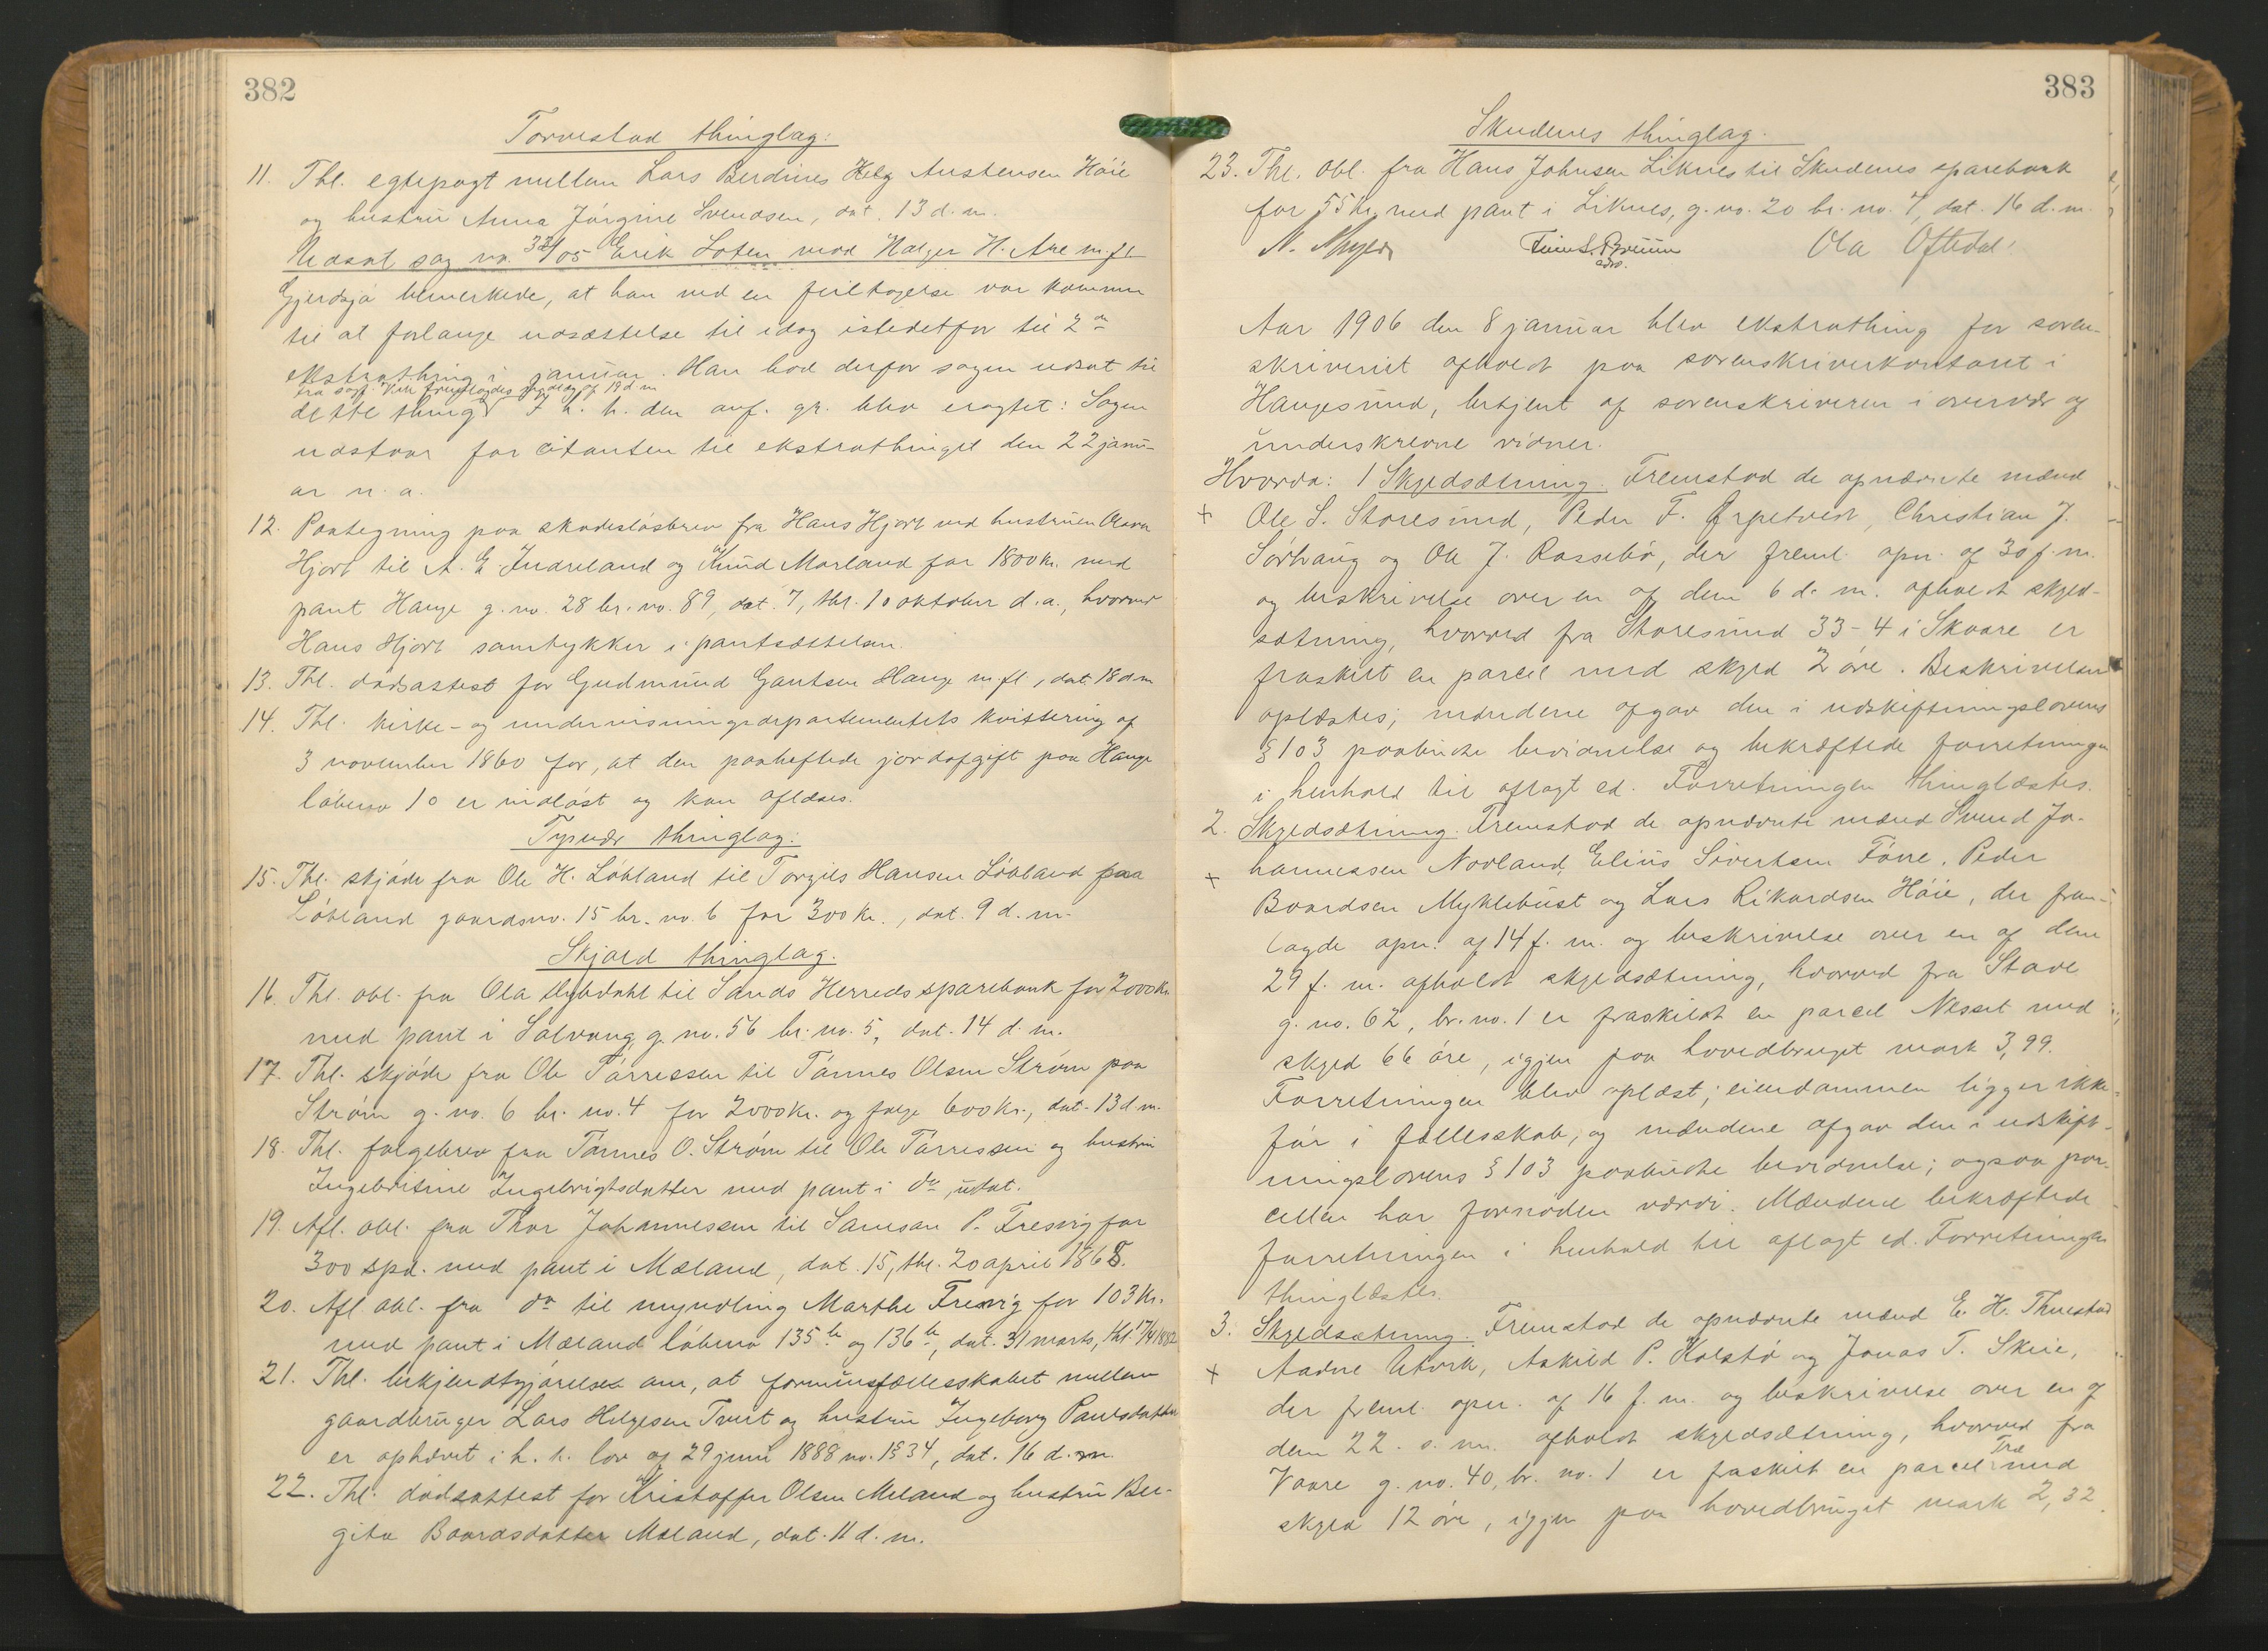 382
Torvestad thinglag:
11. Thl. egtepagt mellem Lars Berdines Helg Austensen Høie
og hustru Anna Jørgine Svendsen, dat. 13 d. m.
Udsat sag no. 33/05 Erik Loten mod Halger H. Are m. fl
Gjerdsjø bemerkede, at han ved en feiltagelse var kommen
til at forlange udsættelse til idag istedetfor til 2den
ekstrathing i januar. Han bad derfor sagen udsat til
fra sagf. Kiær fremlagdes indlæg af 18 d m
dette thing. I h. h. den anf. gr. blev eragtet: Sagen
udstaar for citanten til ekstrathinget den 22 janu-
ar n. a.
12. Paategning paa skadesløsbrev fra Hans Hjort ved hustruen Olava
Hjort til A. E. Indreland og Knud Morland for 1800 kr. med
pant Hauge g. no. 28 br. no. 89, dat. 7, thl. 10 oktober d. a., hvorved
Hans Hjort samtykker i pantsættelsen.
13. Thl. dødsattest for Gudmund Gautsen Hauge m. fl., dat. 18 d m
14. Thl. kirke- og undervisningsdepartementets kvittering af
3 november 1860 for, at den paaheftede jordafgift paa Hauge
løbeno 10 er indløst og kan aflæses.
Tysvær thinglag:
15. Thl. skjøde fra Ole H. Løbland til Torgils Hansen Løbland paa
Løbland gaardsno. 15 br. no. 6 for 300 kr., dat. 9 d. m.
Skjold thinglag.
16. Thl. obl. fra Ola Dybdahl til Sands Herreds sparebank for 2000 kr.
med pant i Solvang, g. no. 56 br. no. 5, dat. 14 d. m.
17. Thl. skjøde fra Ole Tørressen til Tønnes Olsen Strøm paa
Strøm g. no. 6 br. no. 4 for 2000 kr. og følge 600 kr., dat. 13 d. m.
18. Thl. følgebrev fra Tønnes O. Strøm til Ole Tørressen og hustru
Ingebritine Ingebrigtsdatter med pant i do, udat.
19. Afl. obl. fra Thor Johannessen til Samson P. Fresvig for
300 spd. med pant i Mæland, dat. 15, thl. 20 april 1868.
20. Afl. obl. fra do til myndling Marthe Fresvig for 103 kr.
med pant i Mæland løbeno 135 b og 136 b, dat. 31 marts, thl. 17/4 1882
21. Thl. bekjendtgjørelse om, at formuesfællesskabet mellem
gaardbruger Lars Helgesen Tveit og hustru Ingeborg Paulsdatter
er ophævet i h. t. lov af 29 juni 1888 no. 1 § 34, dat. 16 d. m.
22. Thl. dødsattest for Kristoffer Olsen Meland og hustru Ber-
gite Baardsdatter Mæland, dat. 11 d. m.
383
Skudenes thinglag.
23. Thl. obl. fra Hans Johnsen Liknes til Skudenes sparebank
for 55 kr. med pant i Liknes, g. no. 20 br. no. 7, dat. 16 d. m.
Ola Oftedal.
Aar 1906 den 8 januar blev ekstrathing for soren-
skriveriet afholdt paa sorenskriverkontoret i
Haugesund, betjent af sorenskriveren i overvær af
underskrevne vidner.
Hvorda: 1 Skyldsætning. Fremstod de opnævnte mænd
+ Ole S. Storesund, Peder F. Ørpetvedt, Christian J.
Sørhaug og Ole J. Rossebø, der freml. opn. af 30 f. m.
og beskrivelse over en af dem 6 d. m. afholdt skyld-
sætning, hvorved fra Storesund 33-4 i Skaare er
fraskilt en parcel med skyld 2 øre. Beskrivelsen
oplæstes; mændene afgav den i udskiftningslovens
§ 103 paabudte bevidnelse og bekræftede forretningen
i henhold til aflagt ed. Forretningen thinglæstes.
2. Skyldsætning. Fremstod de opnævnte mænd Svend Jo-
+ hannessen Nordland, Elius Sivertsen Førre, Peder
Baardsen Myklebust og Lars Rikardsen Høie, der frem-
lagde opn. af 14 f. m. og beskrivelse over en af dem
29 f. m. afholdt skyldsætning, hvorved fra Stave
g. no. 62, br. no. 1 er fraskildt en parcel Nesset med
skyld 66 øre, igjen paa hovedbruget mark 3,99.
Forretningen blev oplæst; eiendommen ligger ikke
før i fællesskab, og mændene afgav den i udskift-
ningslovens § 103 paabudte bevidnelse; ogsaa par-
cellen har fornøden værdi. Mændene bekræftede
forretningen i henhold til aflagt ed. Forretningen
thinglæstes.
3. Skyldsætning. Fremstod de opnævnte mænd E. H. Thuestad
+ Aadne Utvik, Askild P. Kolstø og Jonas T. Skeie,
der freml. opn. af 16 f. m. og beskrivelse over en af
dem 22. s. m. afholdt skyldsætning, hvorved fra
Vaare g. no. 40, br. no. 1 er fraskilt en parcel Træ med
skyld 12 øre, igjen paa hovedbruget mark 2,32.